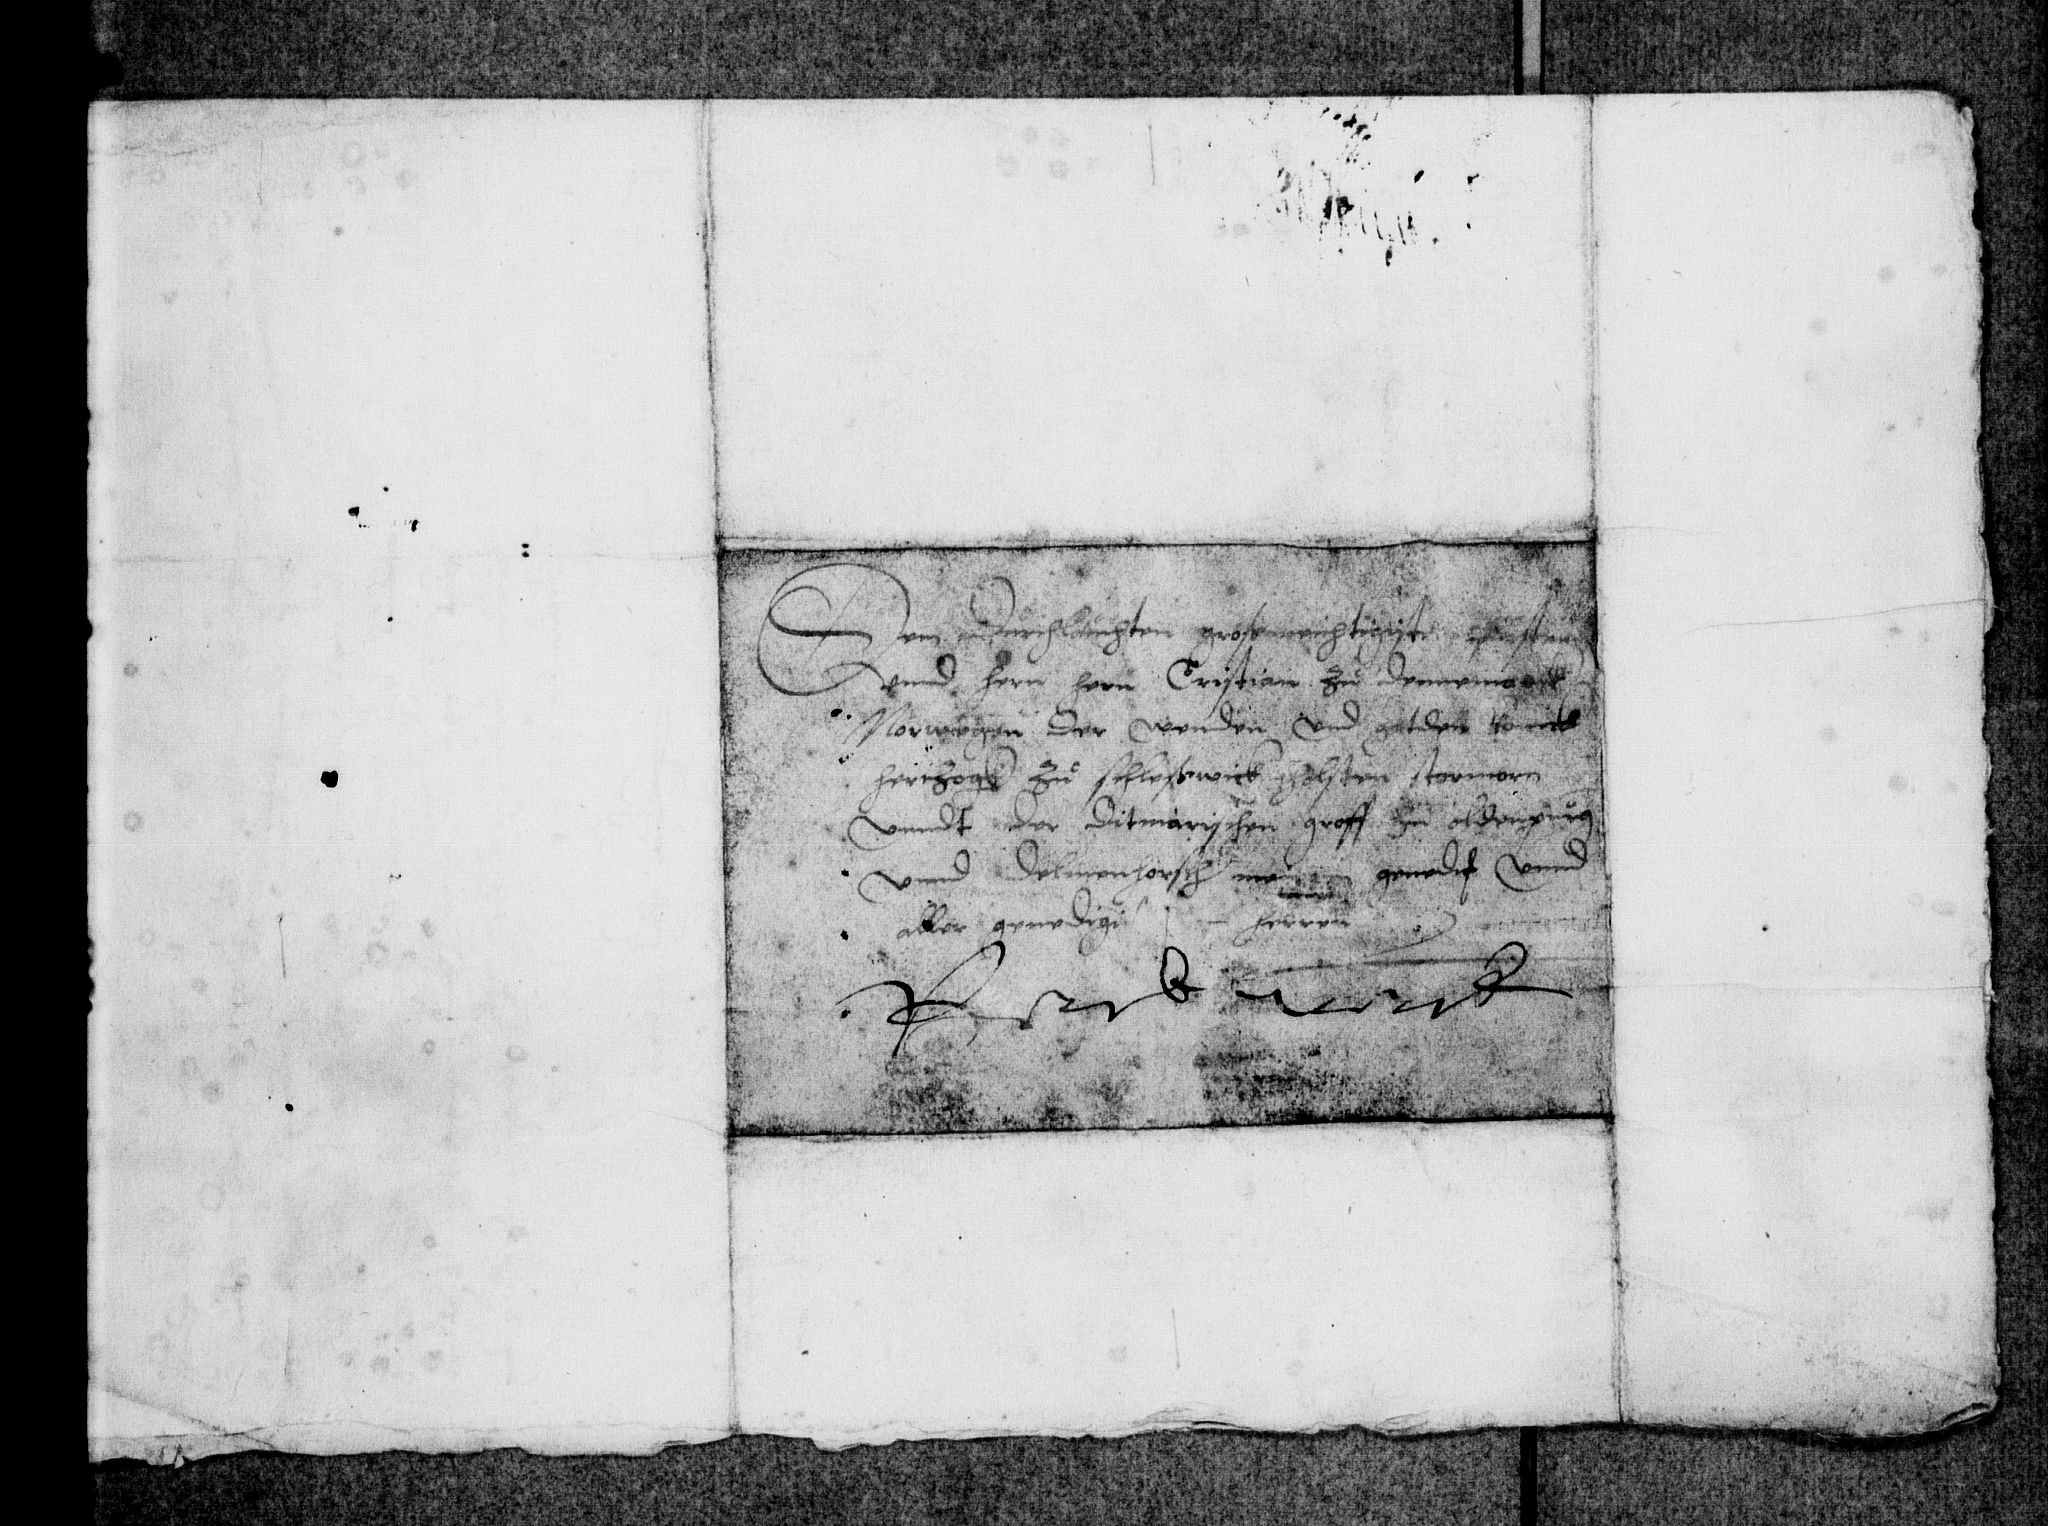 Dem Durchleuchten grosemechtigiste fursten
vnnd hern hern Cristian zu dennemarck
Norwegen der wenden vnd gotden konick
hertzogk zu schleswick holsten stormorn
vnndt der ditmarischen groff zu oldenpurg
vnnd delmenhorsch genedist vnnd
aller genedigi herren